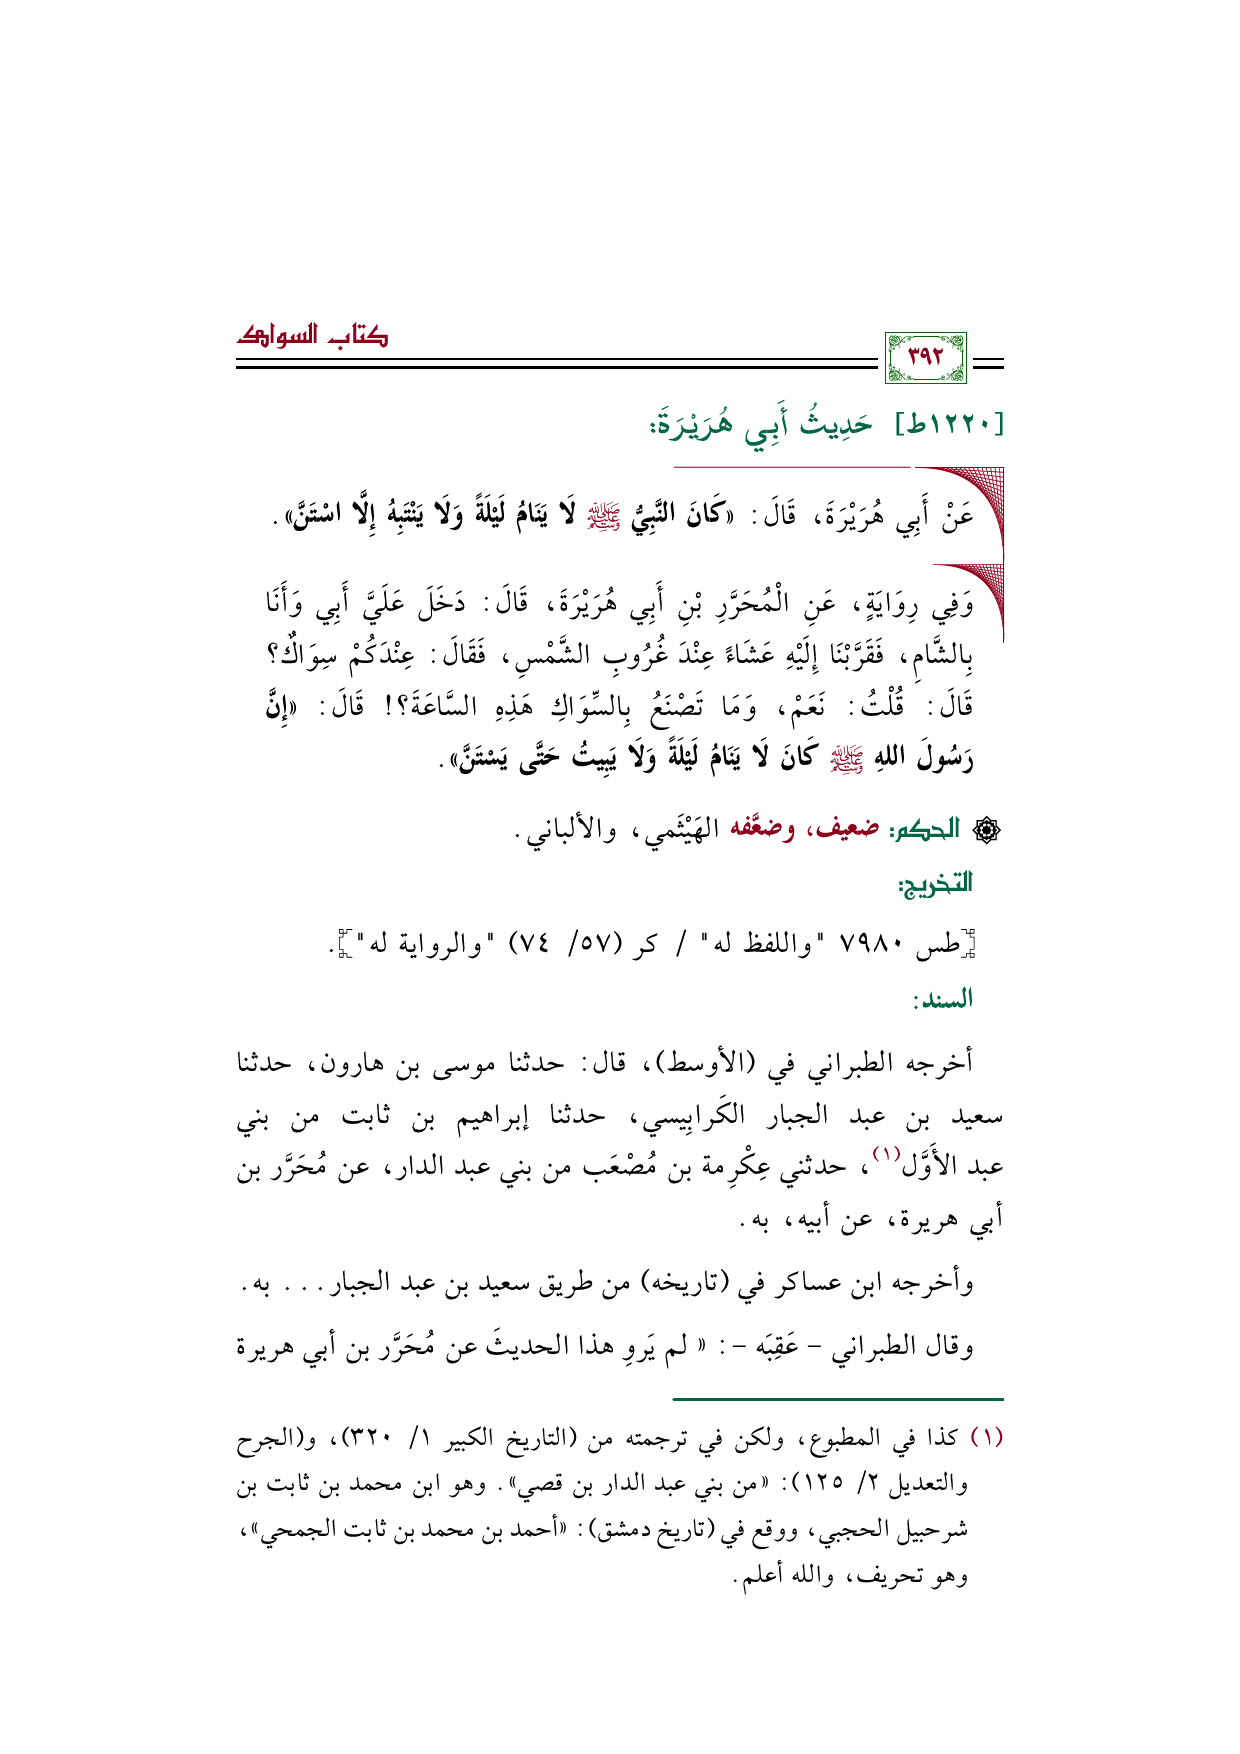 كتاب السواك
٣٩٢
[١٢٢٠ط] حَدِيثُ أَبِي هُرَيْرَةَ:
عَنْ أَبِي هُرَيْرَةَ، قَالَ: «كَانَ النَّبِيُّ ﷺ لَا يَنَامُ لَيْلَةً وَلَا يَنْتَبِهُ إِلَّا اسْتَنَّ».
وَفِي رِوَايَةٍ، عَنِ الْمُحَرَّرِ بْنِ أَبِي هُرَيْرَةَ، قَالَ: دَخَلَ عَلَيَّ أَبِي وَأَنَا
بِالشَّامِ، فَقَرَّبْنَا إِلَيْهِ عَشَاءً عِنْدَ غُرُوبِ الشَّمْسِ، فَقَالَ: عِنْدَكُمْ سِوَاكٌ؟
قَالَ: قُلْتُ: نَعَمْ، وَمَا تَصْنَعُ بِالسِّوَاكِ هَذِهِ السَّاعَةَ؟! قَالَ: «إِنَّ
رَسُولَ اللهِ ﷺ كَانَ لَا يَنَامُ لَيْلَةً وَلَا يَبِيتُ حَتَّى يَسْتَنَّ».
الحكم: ضعيف، وضعَّفه الهَيْثَمي، والألباني.
التخريج:
[طس ٧٩٨٠ "واللفظ له" / كر (٥٧/ ٧٤) "والرواية له"].
السند:
أخرجه الطبراني في (الأوسط)، قال: حدثنا موسى بن هارون، حدثنا
سعيد بن عبد الجبار الكَرابِيسي، حدثنا إبراهيم بن ثابت من بني
عبد الأَوَّل(١)، حدثني عِكْرِمة بن مُصْعَب من بني عبد الدار، عن مُحَرَّر بن
أبي هريرة، عن أبيه، به.
وأخرجه ابن عساكر في (تاريخه) من طريق سعيد بن عبد الجبار... به.
وقال الطبراني - عَقِبَه -: «لم يَروِ هذا الحديثَ عن مُحَرَّر بن أبي هريرة
(١) كذا في المطبوع، ولكن في ترجمته من (التاريخ الكبير ١/ ٣٢٠)، و(الجرح
والتعديل ٢/ ١٢٥): «من بني عبد الدار بن قصي». وهو ابن محمد بن ثابت بن
شرحبيل الحجبي، ووقع في (تاريخ دمشق): «أحمد بن محمد بن ثابت الجمحي»،
وهو تحريف، والله أعلم.